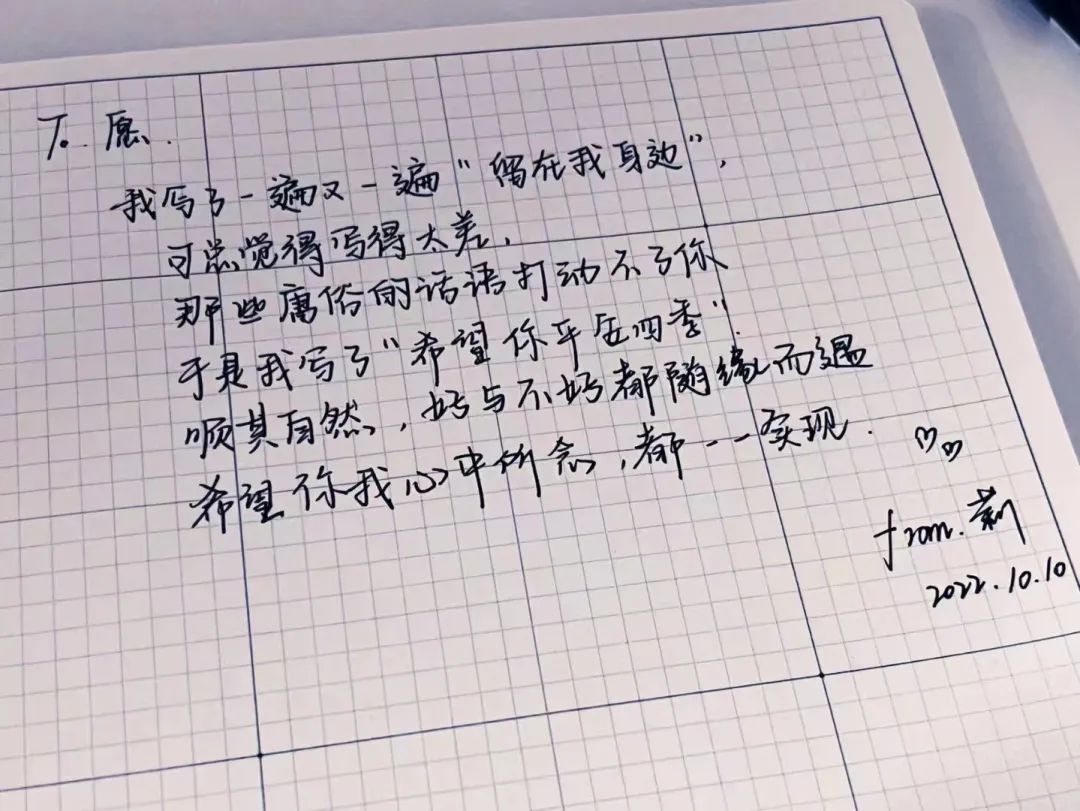 To. 愿.
我写了一遍又一遍“留在我身边”,
可总觉得写得太差,
那些庸俗的话语打动不了你
于是我写了“希望你平安四季”.
顺其自然,好与不好都随缘而遇
希望你我心中所念,都一一实现.
from.莉
2022.10.10